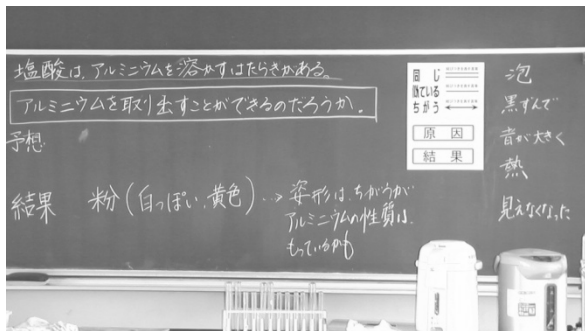 塩酸は、アルミニウムを溶かすはたらきがある。
アルミニウムを取り出すことができるのだろうか。
予想
結果 粉(白っぽい、黄色)…→姿形は、ちがうが
アルミニウムの性質は、
もっているかも
同じ
似ている
ちがう
原因
結果
泡
黒ずんで
音が大きく
熱
見えなくなった